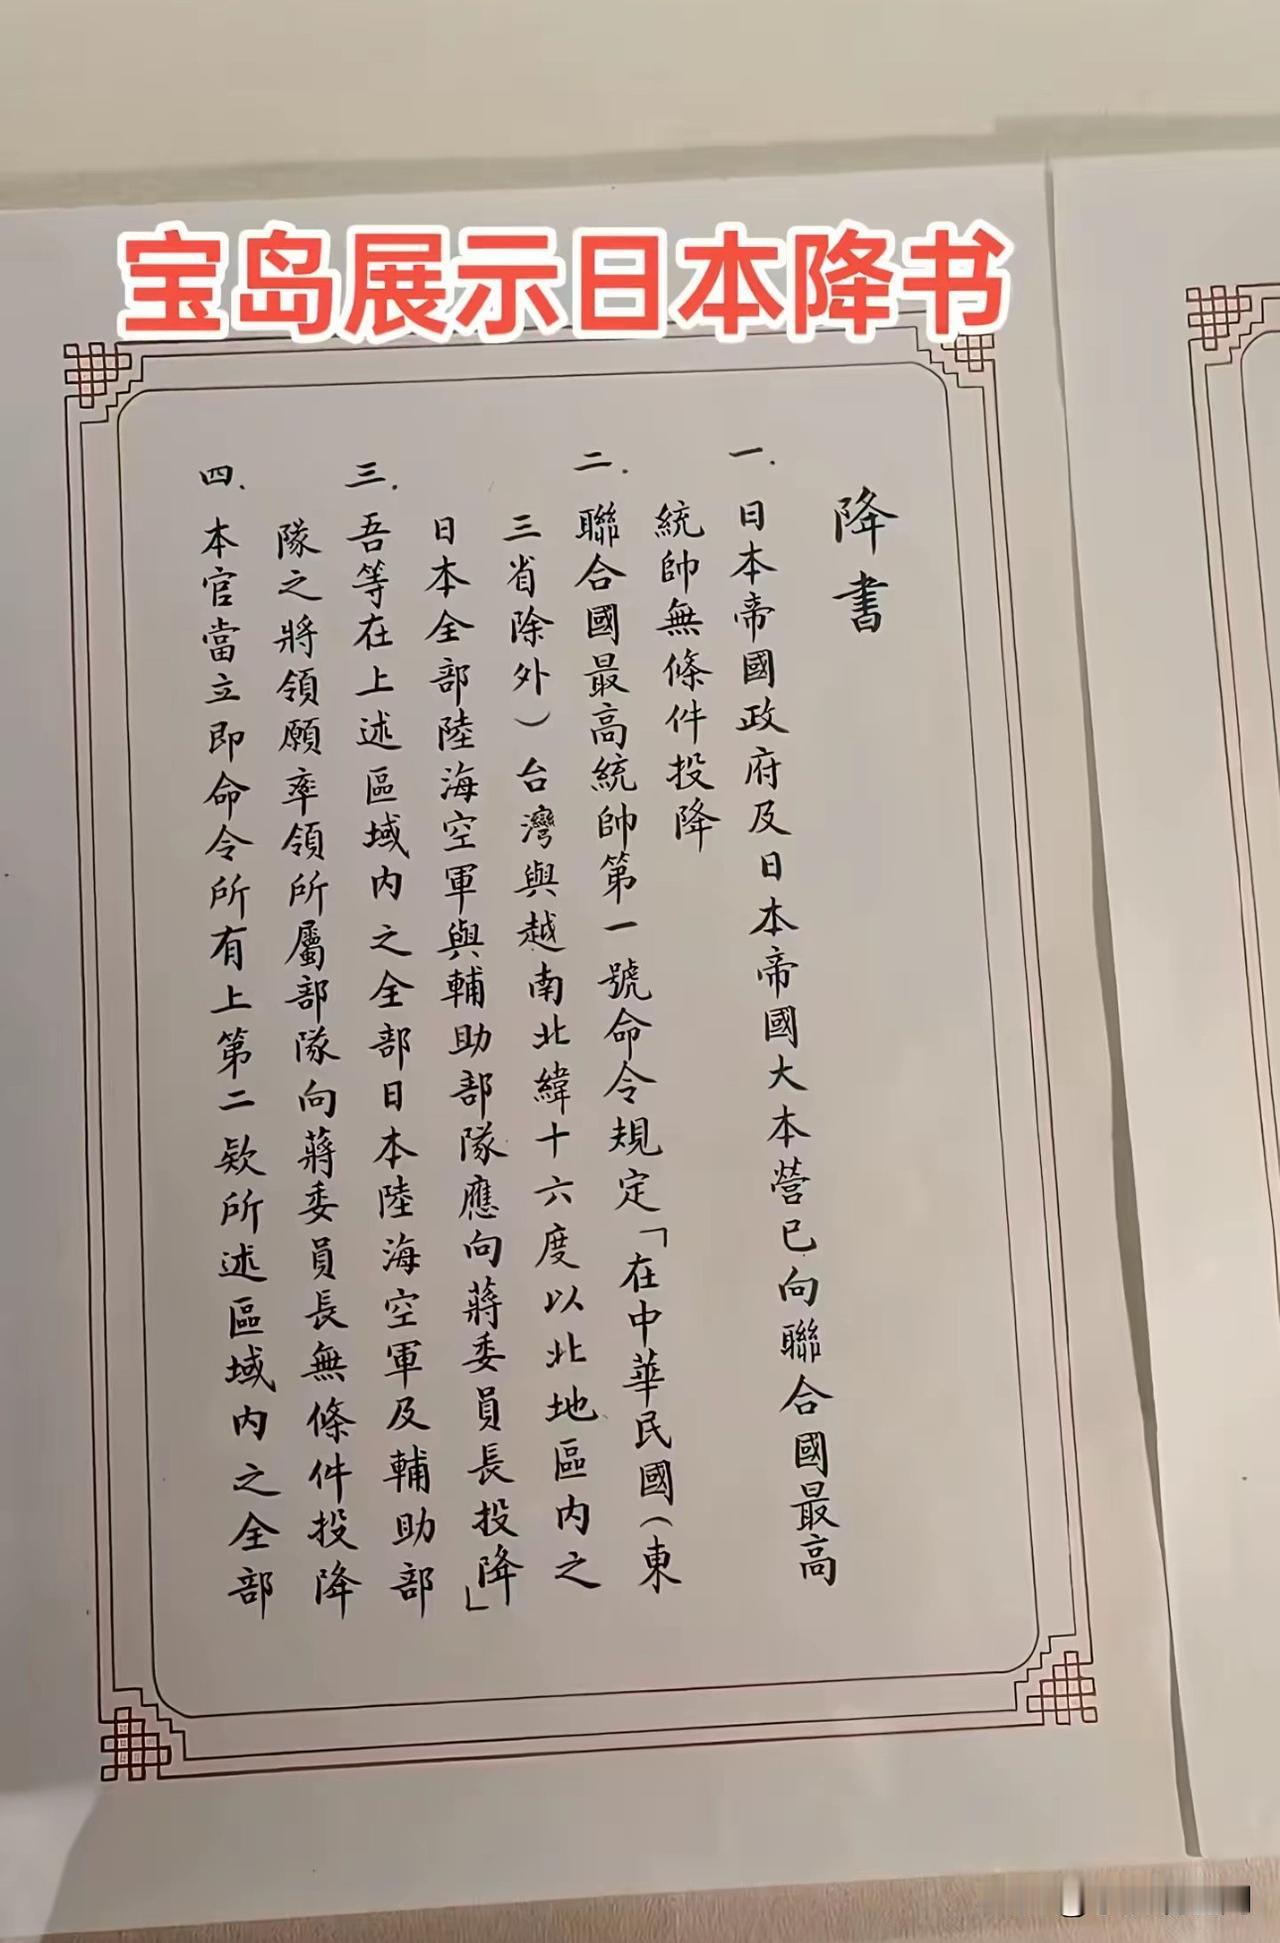 宝岛展示日本降书
降書
一．日本帝國政府及日本帝國大本營已向聯合國最高
統帥無條件投降
二．聯合國最高統帥第一號命令規定「在中華民國（東
三省除外）台灣與越南北緯十六度以北地區内之
日本全部陸海空軍與輔助部隊應向蔣委員長投降」
三．吾等在上述區域内之全部日本陸海空軍及輔助部
隊之將領願率領所屬部隊向蔣委員長無條件投降
四．本官當立即命令所有上第二欵所述區域内之全部